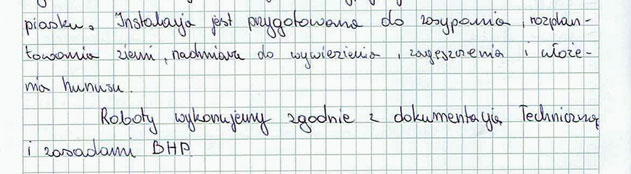 piasku. Instalacja jest przygotowana do zasypania, rozplan-
towania ziemi, nadmiaru do wywiezienia, zagęszczenia i włoże-
nia humusu.
Roboty wykonujemy zgodnie z dokumentacją Techniczną
i zasadami BHP